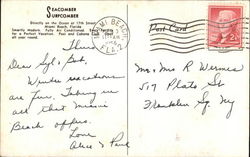 SEACOMBER
SURFCOMBER
Directly on the Ocean at 17th Street
Miami Beach, Florida
Smartly Modern. Fully Air Conditioned.
for a Perfect Vacation. Pool and Cabana Club. Open
all year round.
Thurs.
Dear Syl &
Winter vacations
are fun. Taking in
all that Miami
Beach offers.
Love
Alice & Paul
MIAMI BEACH
FLA.
Post Card
Mr. & Mrs R
517
Franklin Sq NY